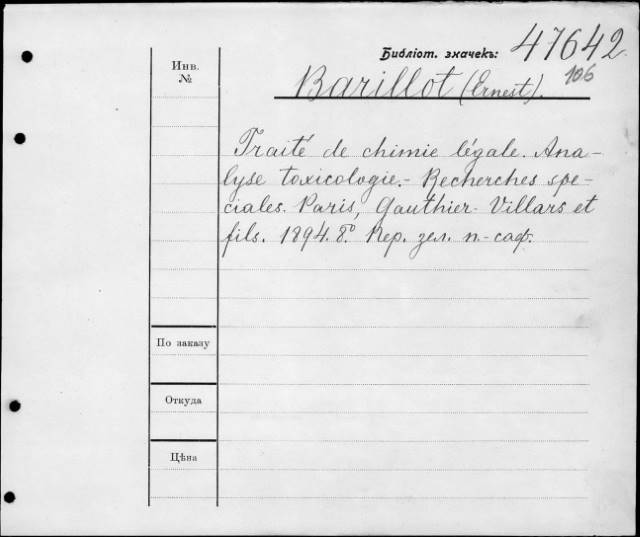 Библіот. значекъ: 47642
106
Инв.
№
Barillot (Ernest).
Traité de chimie légale. Ana-
lyse toxicologie.- Recherches spe-
ciales. Paris, Gauthier-Villars et
fils. 1894. 8º. Пер. зел. п.-саф.
По заказу
Откуда
Цѣна